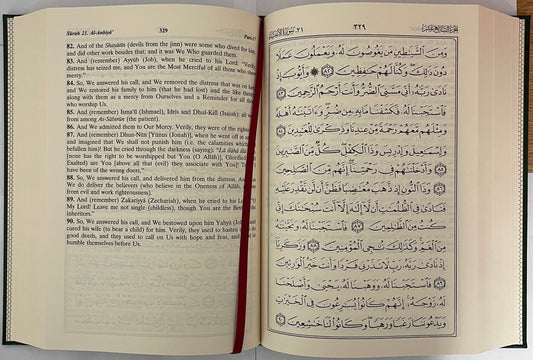 Sûrah 21. Al-Anbiyâ' 329 Part 17
82. And of the Shayâtîn (devils from the jinn) were some who dived for him,
and did other work besides that; and it was We Who guarded them.
83. And (remember) Ayyûb (Job), when he cried to his Lord: "Verily,
distress has seized me, and You are the Most Merciful of all those who show
mercy."
84. So, We answered his call, and We removed the distress that was on him,
and We restored his family to him (that he had lost) and the like thereof
along with them as a mercy from Ourselves and a Reminder for all those
who worship Us.
85. And (remember) Isma'îl (Ishmael), Idris and Dhul-Kifl (Isaiah): all were
from among As-Sâbirûn (the patient).
86. And We admitted them to Our Mercy. Verily, they were of the righteous.
87. And (remember) Dhun-Nûn [Yûnus (Jonah)], when he went off in anger,
and imagined that We shall not punish him (i.e. the calamities which had
befallen him)! But he cried through the darkness (saying): "Lâ ilâha illa
[none has the right to be worshipped but You (O Allâh)], Glorified
Exalted) are You [above all that (evil) they associate with You]! Truly, I
have been of the wrong doers."
88. So We answered his call, and delivered him from the distress. And
We do deliver the believers (who believe in the Oneness of Allâh,
from evil and work righteousness).
89. And (remember) Zakariyâ (Zechariah), when he cried to his Lord:
My Lord! Leave me not single (childless), though You are the Best
inheritors."
90. So, We answered his call, and We bestowed upon him Yahya (John)
cured his wife (to bear a child) for him. Verily, they used to hasten
good deeds, and they used to call on Us with hope and fear, and
humble themselves before Us.
٢١ سورة الأنبياء ٣٢٩ الجزء السابع عشر
وَمِنَ الشَّيَاطِينِ مَن يَغُوصُونَ لَهُ وَيَعْمَلُونَ عَمَلًا
دُونَ ذَٰلِكَ وَكُنَّا لَهُمْ حَافِظِينَ ٨٢ وَأَيُّوبَ إِذْ
نَادَىٰ رَبَّهُ أَنِّي مَسَّنِيَ الضُّرُّ وَأَنتَ أَرْحَمُ الرَّاحِمِينَ ٨٣
فَاسْتَجَبْنَا لَهُ فَكَشَفْنَا مَا بِهِ مِن ضُرٍّ وَآتَيْنَاهُ أَهْلَهُ
وَمِثْلَهُم مَّعَهُمْ رَحْمَةً مِّنْ عِندِنَا وَذِكْرَىٰ لِلْعَابِدِينَ ٨٤
وَإِسْمَاعِيلَ وَإِدْرِيسَ وَذَا الْكِفْلِ كُلٌّ مِّنَ الصَّابِرِينَ
٨٥ وَأَدْخَلْنَاهُمْ فِي رَحْمَتِنَا إِنَّهُم مِّنَ الصَّالِحِينَ
٨٦ وَذَا النُّونِ إِذ ذَّهَبَ مُغَاضِبًا فَظَنَّ أَن لَّن نَّقْدِرَ عَلَيْهِ
فَنَادَىٰ فِي الظُّلُمَاتِ أَن لَّا إِلَٰهَ إِلَّا أَنتَ سُبْحَانَكَ إِنِّي
كُنتُ مِنَ الظَّالِمِينَ ٨٧ فَاسْتَجَبْنَا لَهُ وَنَجَّيْنَاهُ
مِنَ الْغَمِّ وَكَذَٰلِكَ نُنجِي الْمُؤْمِنِينَ ٨٨ وَزَكَرِيَّا
إِذْ نَادَىٰ رَبَّهُ رَبِّ لَا تَذَرْنِي فَرْدًا وَأَنتَ خَيْرُ الْوَارِثِينَ
٨٩ فَاسْتَجَبْنَا لَهُ وَوَهَبْنَا لَهُ يَحْيَىٰ وَأَصْلَحْنَا
لَهُ زَوْجَهُ إِنَّهُمْ كَانُوا يُسَارِعُونَ فِي الْخَيْرَاتِ
وَيَدْعُونَنَا رَغَبًا وَرَهَبًا وَكَانُوا لَنَا خَاشِعِينَ ٩٠